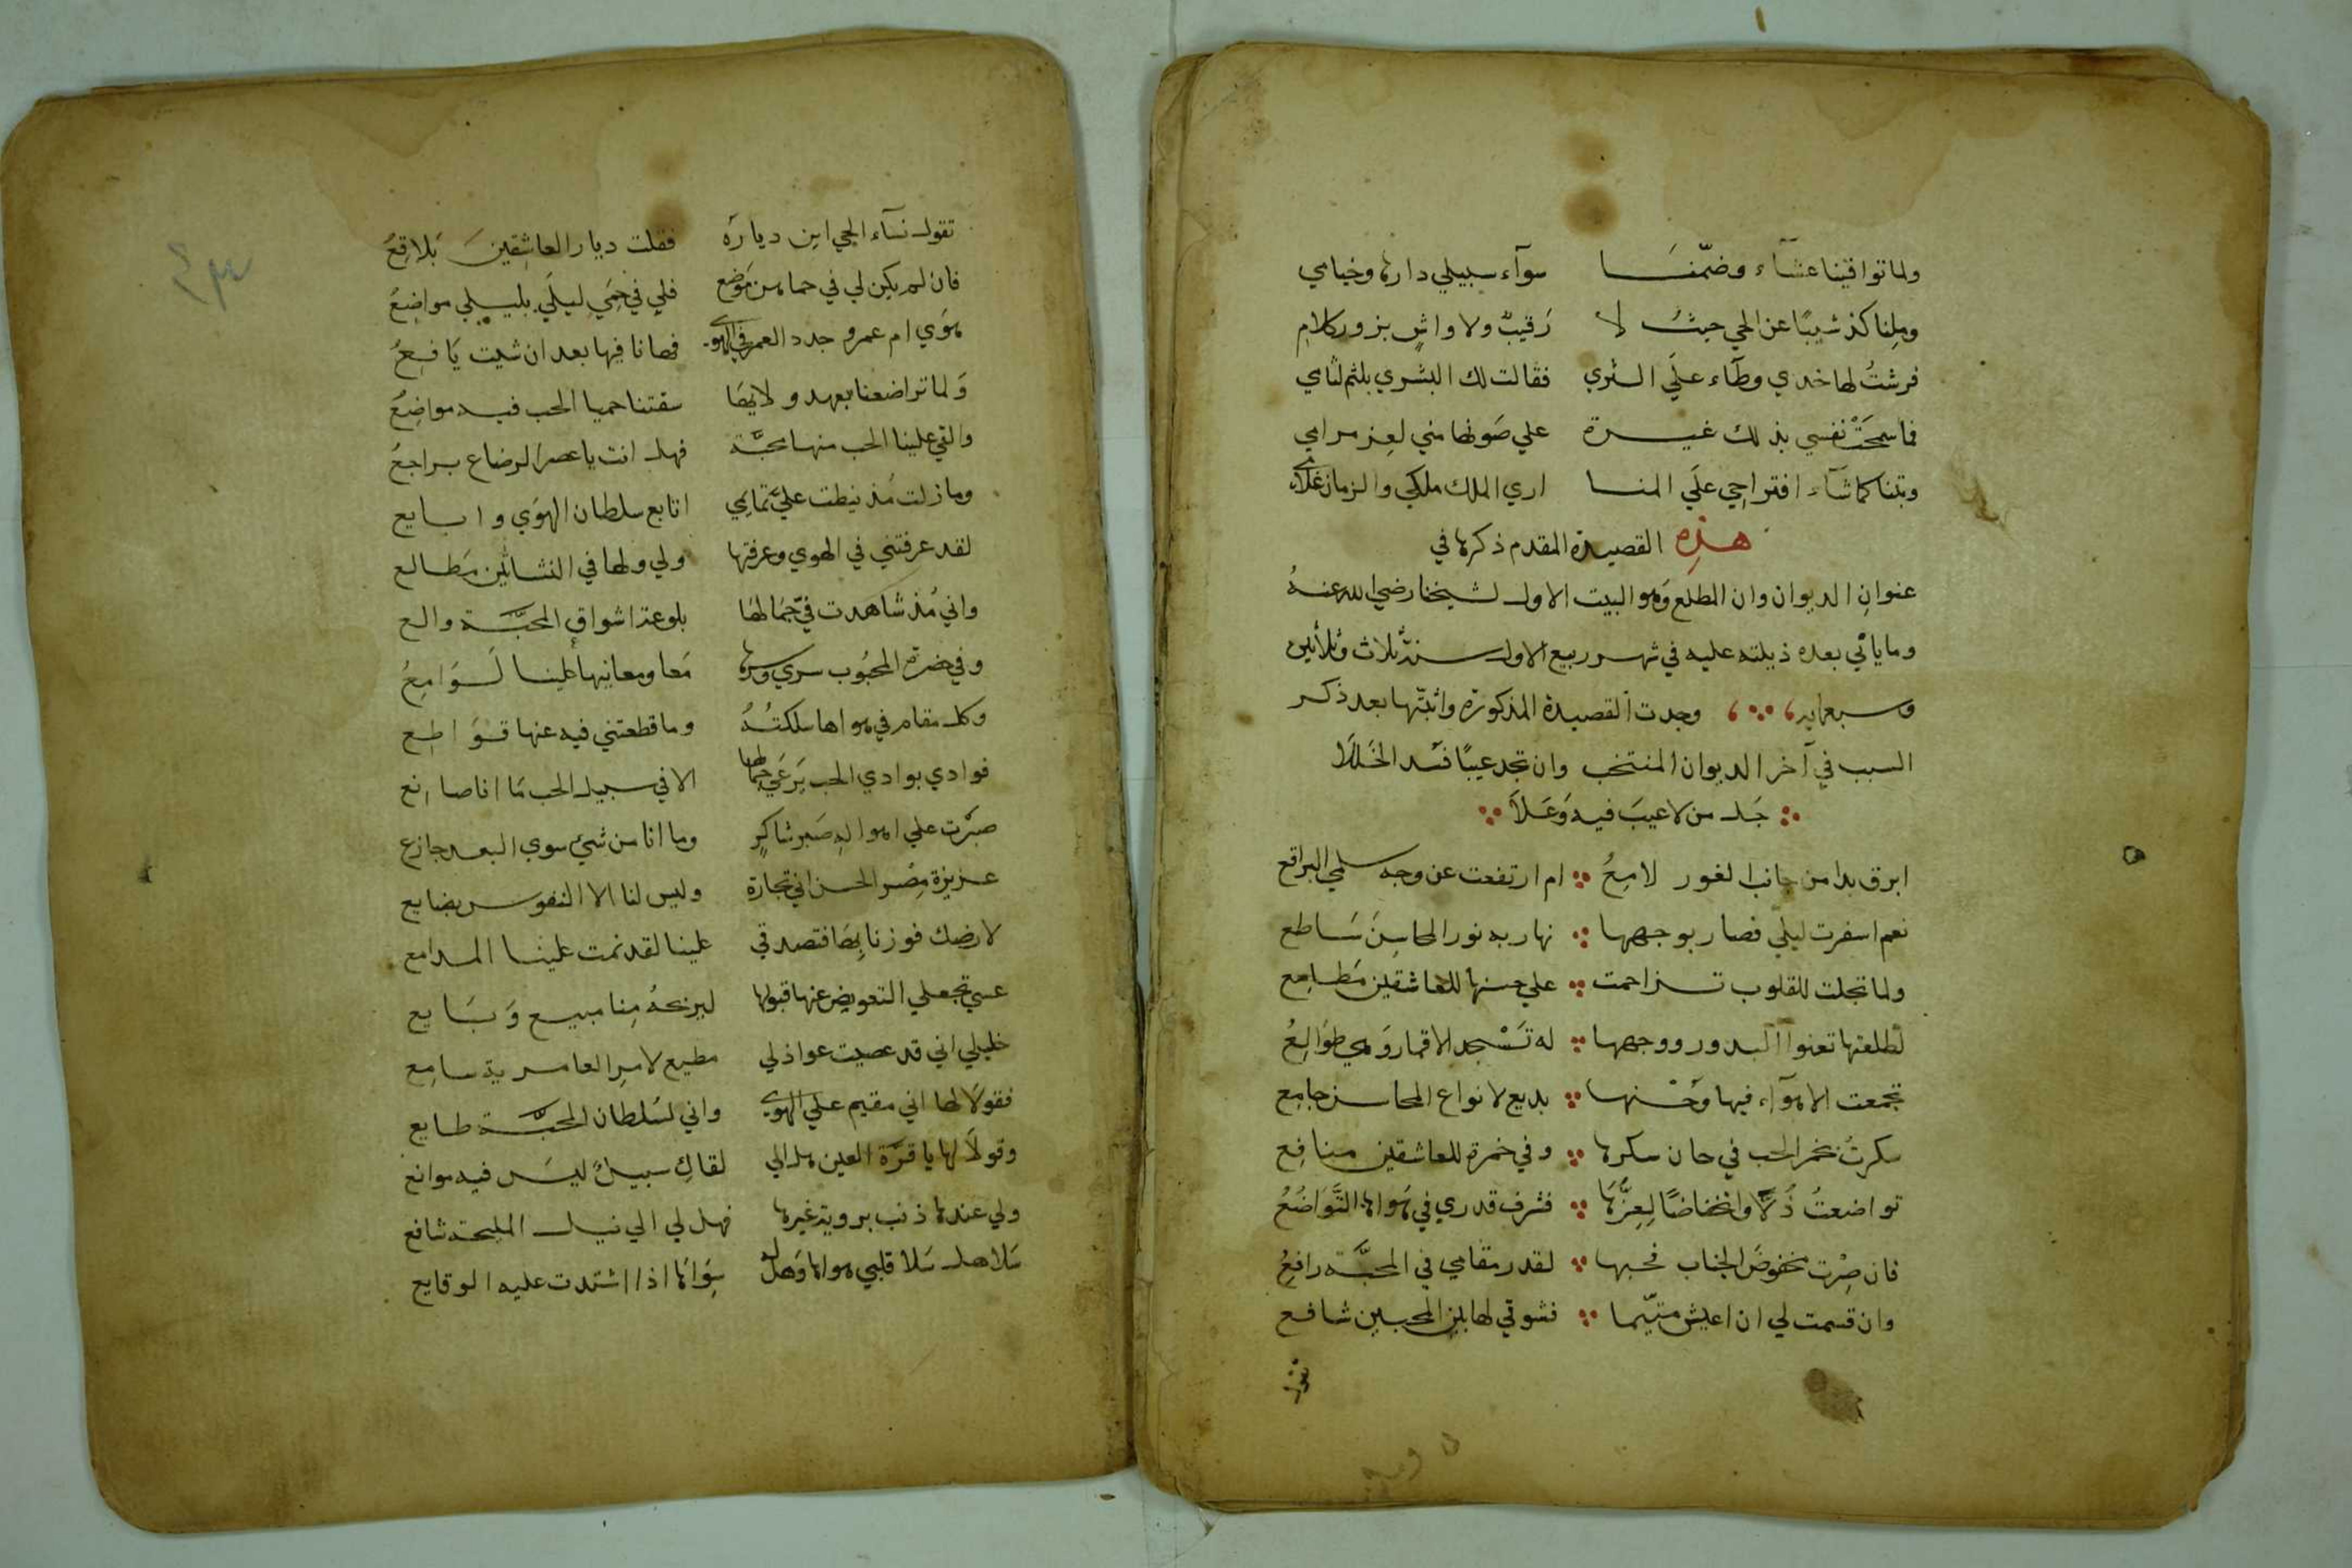 ولما توافينا عشآء وضمّنـــا سوآء سبيلي دارها وخيامي
وملنا كذ شيبًا عن الحي حيثُ لا رَقيبٌ ولا واشٍ بزور كلامِ
فرشتُ لها خدي وطآء علَي الثري فقالت لك البشري بلثم لثامي
فما سمحَتْ نفسي بذلك غيرة علي صَونها مني لعِز مرامي
وبتنا كما شآء اقتراحي علَي المنا اري الملك ملكي والزمان غلامي
هذِه القصيدة المقدم ذكرها في
عنوانِ الديوان وان المطلع وهو البيت الاول لشيخنا رضي الله عنهُ
وما ياتي بعده ذيلته عليه في شهر ربيع الاول سنة ثلاث وثلاثين
وسبعماية وجدت القصيدة المذكورة واثبتّها بعد ذكر
السبب في آخر الديوان المنتخب وان تجد عيبًا فسَد الخَلَلا
جَل من لا عيبَ فيه وَعَلاَ
ابرق بدا من جانب الغور لامِعُ ام ارتفعت عن وجه سلمي البراقع
نعم اسفرت ليلي فصار بوجهها نهار به نور المحاسِن سَاطع
ولما تجلت للقلوب تزاحمت علي حسنها للعاشقين مَطامِع
لطلعتها تعنوا البدور ووجهها له تَسْجد الاقمار وَهي طوَالِعُ
تجمعت الاهوآء فيها وَحُسْنها بديع لانواع المحاسن جامِع
سكرتُ بخمر الحب في حان سكرها وفي خمرة للعاشقين منافِع
تواضعتُ ذُلًّا وانخفاضًا لِعِزِّهَا فشرف قدري في هَواها التَّوَاضُعُ
فان صِرْت مخفوضَ الجناب فحبها لقدر مقامي في المحبَّة رافعِ
وان قسمت لي ان اعيش متيّما فشوقي لها بين المحبين شافع
تقول
تقول نسآء الحي اين ديارَه فقلت ديار العاشِقينَ بَلاقِعُ
فان لم يكن لي في حماهن مَوْضع فلي في حِمَي ليلَي بليلي مواضِعُ
هوَي ام عمرو جدد العمر في الهوي فها انا فيها بعد ان شبت يَافِعُ
وَلما تراضعنا بمهد ولايهَا سقتنا حميا الحب فيه مواضِعُ
والقي علينا الحب منها محبَّة فهل انت يا عصر الرضاع براجعُ
وما زلت مُذ نيطت عليَّ تمايمي اتابع سلطان الهوَي وابايع
لقد عرفتني في الهوي وعرفتها ولي ولها في النشاتين مَطالع
واني مُذ شاهدت فيَّ جمَالهَا بلوعة اشواق المحبَّة والع
وفي حضرة المحبُوب سري وسرها مَعا ومعانيها علينا لَوَامِعُ
وكل مقام في هواها سلكتُهُ وما قطعتني فيه عنها قوَاطِع
فوادي بوادي الحب يَرعَي جمالها الا في سبيل الحب مَا انا صانع
صبَرْت علي اهواله صَبر شاكِرٍ وما انا من شيء سوي البعد جازع
عزيزة مِصْر الحسن اني تجارة وليس لنا الا النفوس بضايع
لارضك فوزنا بِهَا فتصدقي علينا لقد نمت علينا المدامع
عسي تجعلي التعويض عنها قبولها ليربحهُ مِنا مبيع وَبَايع
خليلي اني قد عصيت عواذلي مطيع لامرِ العامرية سامِع
فقولَا لها اني مقيم علي الهوي واني لسُلطان المحبَّة طايع
وقولَا لها يا قرَّة العين هل الي لقاكِ سبيلٌ ليسَ فيه موانع
ولي عندها ذنب بروية غيرها فهل لي الي نيل المليحة شافع
سَلا هل سَلا قلبي هواها وَهل له سِوَاها اذا اشتدت عليه الوقايع